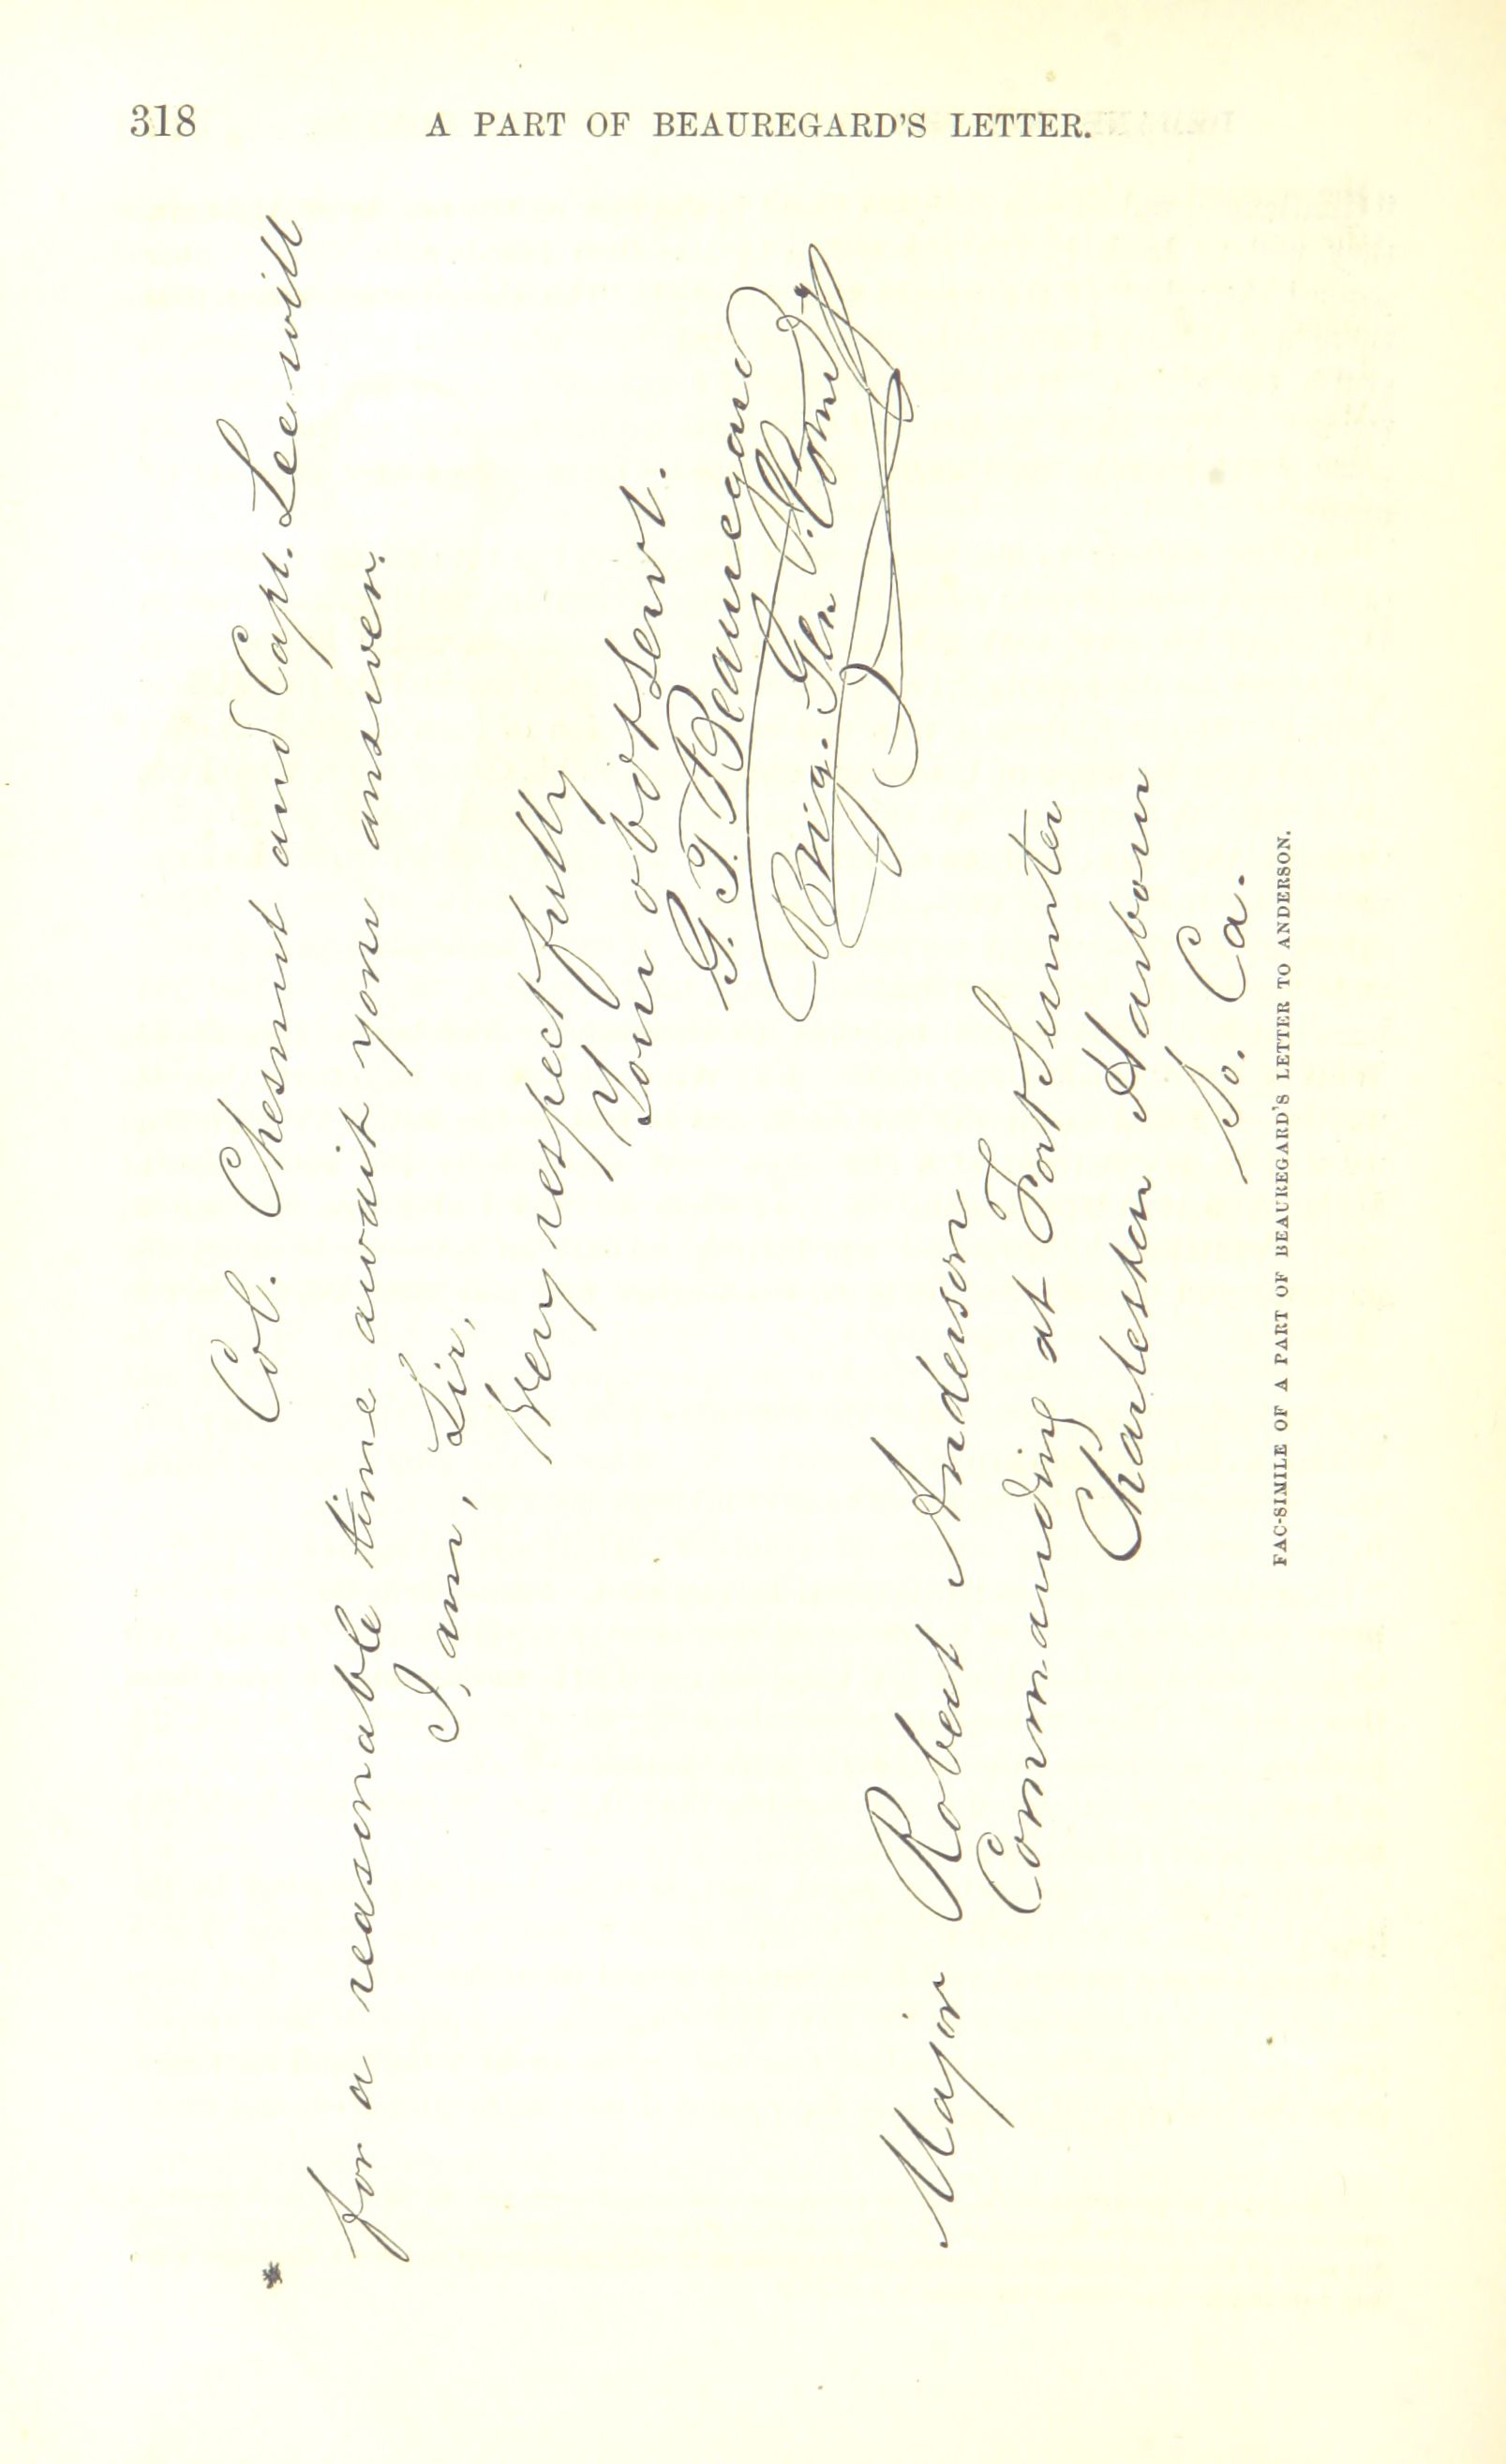 318
A PART OF BEAUREGARD'S LETTER.
* Col. Chesnut and Capt. Lee will
for a reasonable time await your answer.
I, am, Sir,
Very respectfully
Your obdt servt.
G. T. Beauregard
Brig. Gen. Comdg
Major Robert Anderson
Commanding at Fort Sumter
Charleston Harbour
So. Ca.
FAC-SIMILE OF A PART OF BEAUREGARD'S LETTER TO ANDERSON.